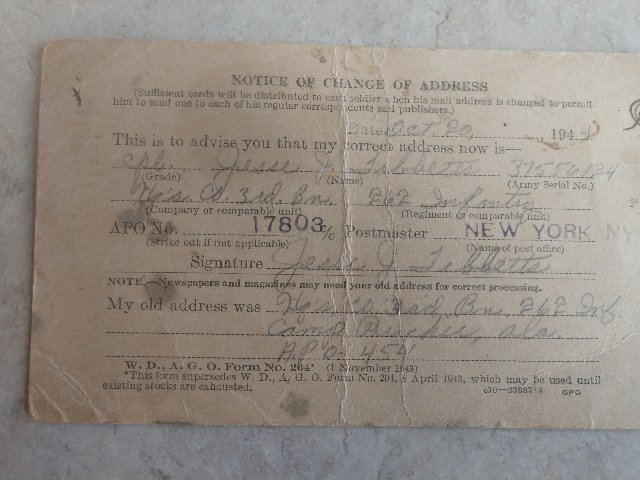 NOTICE OF CHANGE OF ADDRESS
(Sufficient cards will be distributed to each soldier when his mail address is changed to permit
him to send one to each of his regular correspondents and publishers.)
Date Oct. 20, 1944
This is to advise you that my correct address now is—
Cpl. Jesse J. Tibbetts
(Grade) (Name) (Army Serial No.)
Hq's. Co. 3rd. Bn. 262 Infantry
(Company or comparable unit) (Regiment or comparable unit)
APO No. 17803 c/o Postmaster NEW YORK NY
(Strike out if not applicable) (Name of post office)
Signature Jesse J. Tibbetts
NOTE.—Newspapers and magazines may need your old address for correct processing.
My old address was Hq's Co 3rd, Bn, 262 Inf
Camp Rucker, Ala
A.P.O. 454
W. D., A. G. O. Form No. 204* (1 November 1943)
*This form supersedes W. D., A. G. O. Form No. 204, 8 April 1943, which may be used until
existing stocks are exhausted. c16—33987-3 GPO